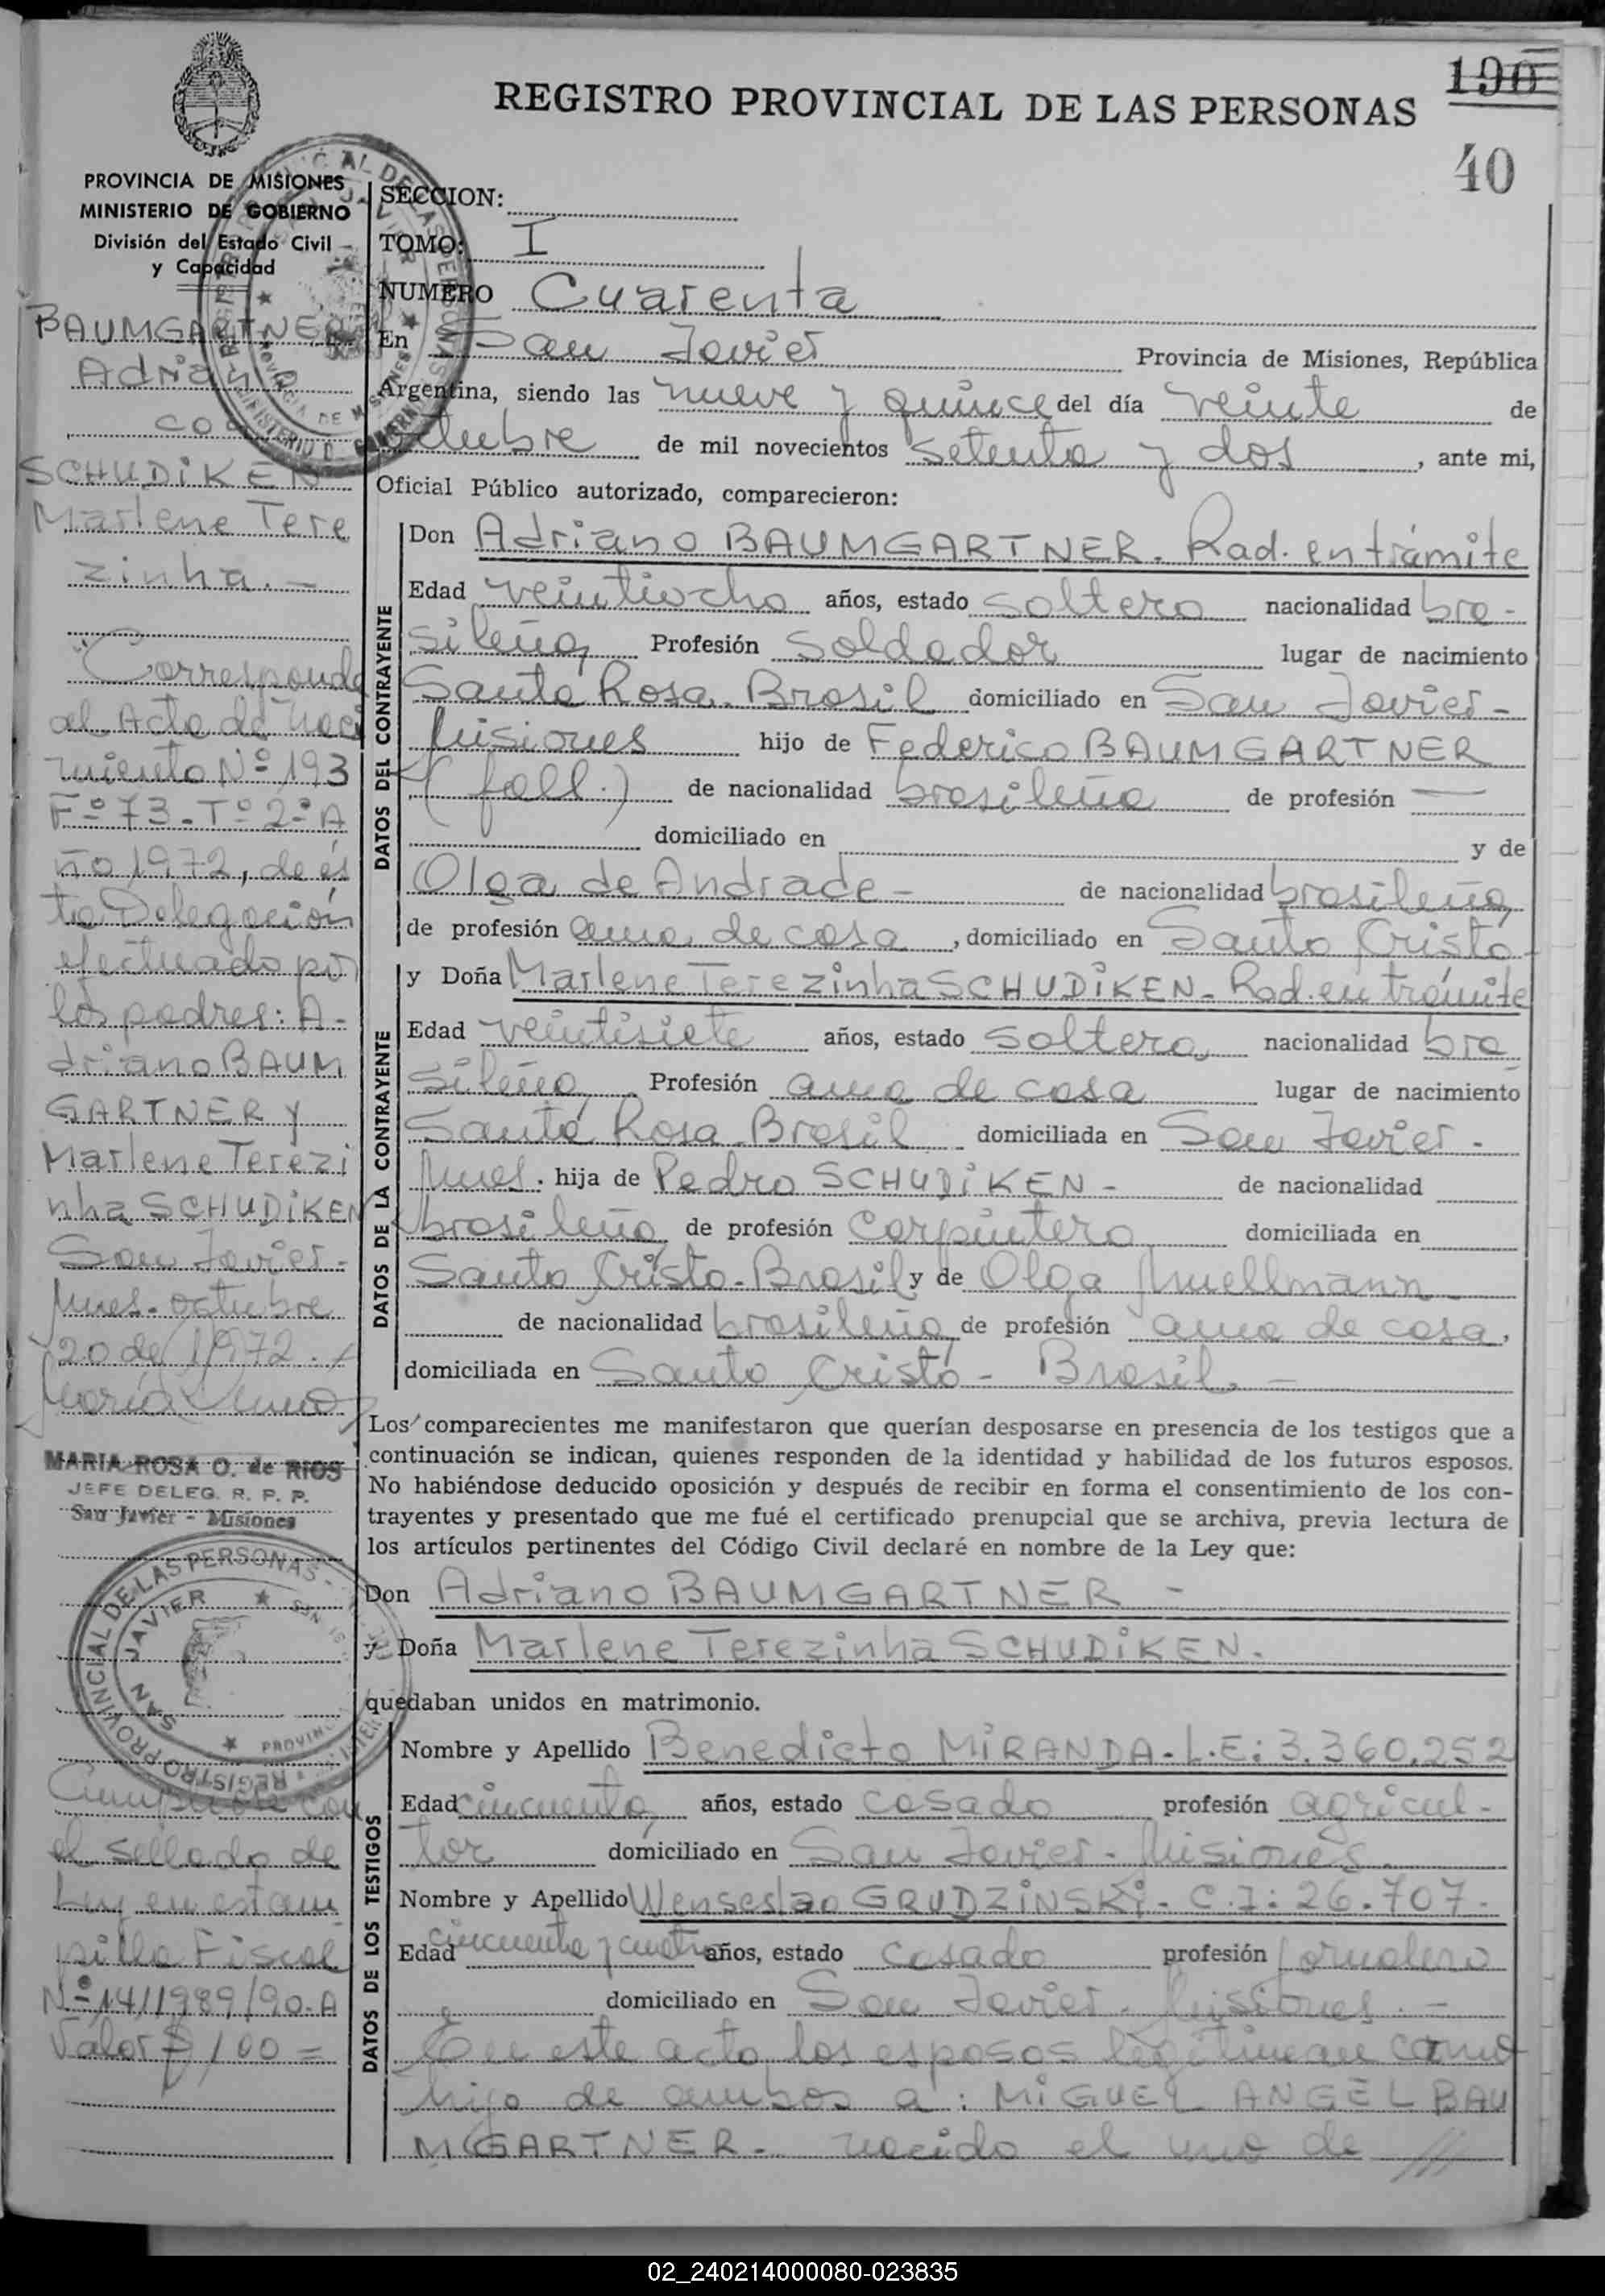 REGISTRO PROVINCIAL DE LAS PERSONAS
190
40
PROVINCIA DE MISIONES
MINISTERIO DE GOBIERNO
División del Estado Civil
y Capacidad
BAUMGARTNER
Adriano
con
SCHUDIKEN
Marlene Tere
zinha. -
Corresponde
al Acta de naci
miento Nº 193
Fº 73 - Tº 2º A
ño 1972, de és
ta Delegación
efectuado por
los padres: A-
driano BAUM
GARTNER y
Marlene Terezi
nha SCHUDIKEN
San Javier -
Mnes. octubre
20 de 1972. -
MARIA ROSA O. de RIOS
JEFE DELEG. R. P. P.
San Javier - Misiones
REGISTRO PROVINCIAL DE LAS PERSONAS
SAN JAVIER
con
el sellado de
Ley en estam
pilla Fiscal
Nº 1411989/90-A
Valor $ 100 =
SECCION:
TOMO: I
NUMERO Cuarenta
En San Javier Provincia de Misiones, República
Argentina, siendo las nueve y quince del día veinte de
octubre de mil novecientos setenta y dos, ante mi,
Oficial Público autorizado, comparecieron:
DATOS DEL CONTRAYENTE
Don Adriano BAUMGARTNER. Rad. en trámite
Edad veintiocho años, estado soltero nacionalidad bra-
sileña, Profesión soldador lugar de nacimiento
Santa Rosa. Brasil domiciliado en San Javier -
Misiones hijo de Federico BAUMGARTNER
(fall.) de nacionalidad brasileña de profesión —
domiciliado en y de
Olga de Andrade - de nacionalidad brasileña,
de profesión ama de casa, domiciliado en Santo Cristo
DATOS DE LA CONTRAYENTE
y Doña Marlene Terezinha SCHUDIKEN - Rad. en trámite
Edad veintisiete años, estado soltera, nacionalidad bra
sileña, Profesión ama de casa lugar de nacimiento
Santa Rosa Brasil domiciliada en San Javier -
Mnes. hija de Pedro SCHUDIKEN - de nacionalidad
brasileña, de profesión carpintero domiciliada en
Santo Cristo - Brasil y de Olga Muellmann -
de nacionalidad brasileña, de profesión ama de casa,
domiciliada en Santo Cristo - Brasil. -
Los comparecientes me manifestaron que querían desposarse en presencia de los testigos que a
continuación se indican, quienes responden de la identidad y habilidad de los futuros esposos.
No habiéndose deducido oposición y después de recibir en forma el consentimiento de los con-
trayentes y presentado que me fué el certificado prenupcial que se archiva, previa lectura de
los artículos pertinentes del Código Civil declaré en nombre de la Ley que:
Don Adriano BAUMGARTNER -
y Doña Marlene Terezinha SCHUDIKEN.
quedaban unidos en matrimonio.
DATOS DE LOS TESTIGOS
Nombre y Apellido Benedicto MIRANDA - L.E: 3.360.252
Edad cincuenta, años, estado casado profesión agricul-
tor domiciliado en San Javier - Misiones.
Nombre y Apellido Wenseslao GRUDZINSKI - C.I: 26.707 -
Edad cincuenta y cuatro años, estado casado profesión jornalero
domiciliado en San Javier. Misiones. -
En este acto, los esposos legitiman como
hijo de ambos a: MIGUEL ANGEL BAU
MGARTNER - nacido el uno de ///
02_240214000080-023835